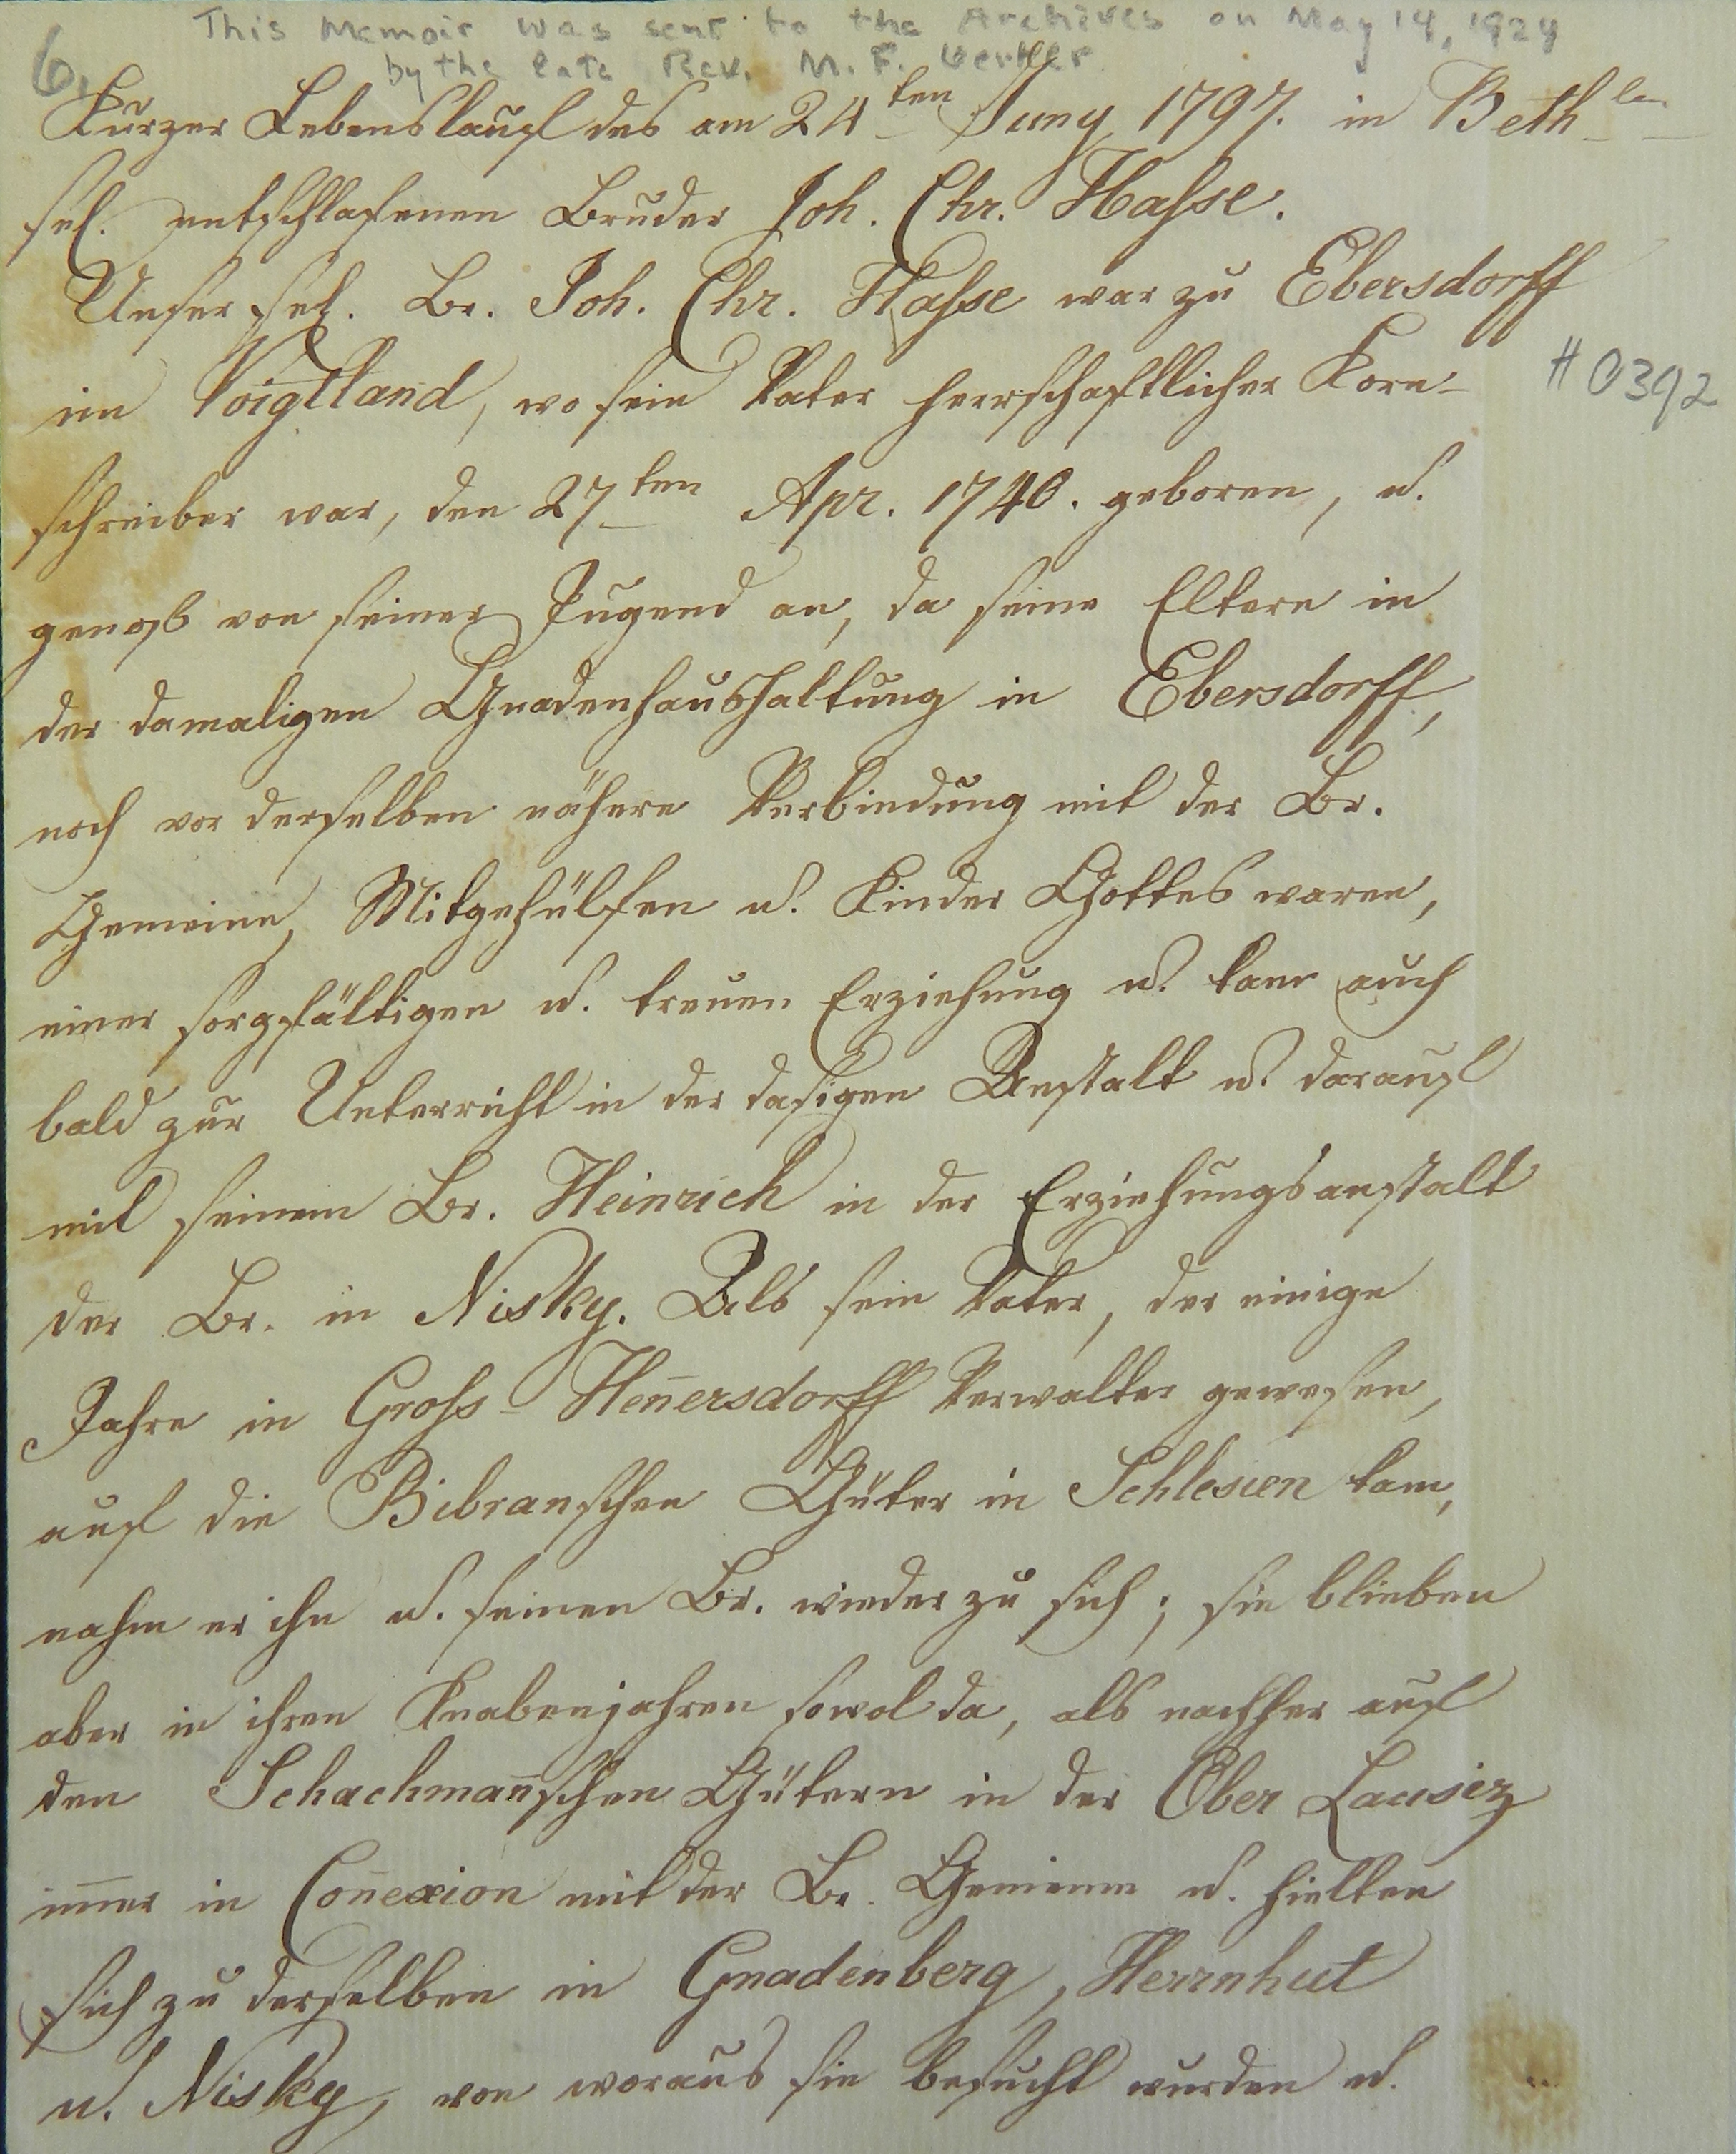 This Memoir was sent to the Archives on May 14, 1924
by the late Rev. M. F. Oerter
6.
Kurzer Lebenslauf des am 24ten Juny 1797. in Beth_lm
sel. entschlafenen Bruder Joh. Chr. Hasse.
Unser sel. Br. Joh. Chr. Hasse war zu Ebersdorff
im Voigtland, wo sein Vater herrschaftlicher Korn-
# 0392
schreiber war, den 27ten Apr. 1740. geboren, u.
genoß von seiner Jugend an, da seine Eltern in
der damaligen Gnadenhaushaltung in Ebersdorff,
noch vor derselben nähern Verbindung mit der Br.
Gemeine, Mitgehülfen u. Kinder Gottes waren,
einer sorgfältigen u. treuen Erziehung u. kam auch
bald zur Unterricht in der dasigen Anstalt u. darauf
mit seinem Br. Heinrich in der Erziehungsanstalt
der Br. in Nisky. Als sein Vater, der einige
Jahre in Gross-Hen̄ersdorff Verwalter gewesen,
auf die Bibranschen Güter in Schlesien kam,
nahm er ihn u. seinen Br. wieder zu sich; sie blieben
aber in ihren Knabenjahren sowol da, als nachher auf
den Schachman̄schen Gütern in der Ober Lausiz
im̄er in Con̄exion mit der Br. Gemeine u. hielten
sich zu derselben in Gnadenberg, Herrnhut
u. Nisky, von woraus sie besucht wurden u.